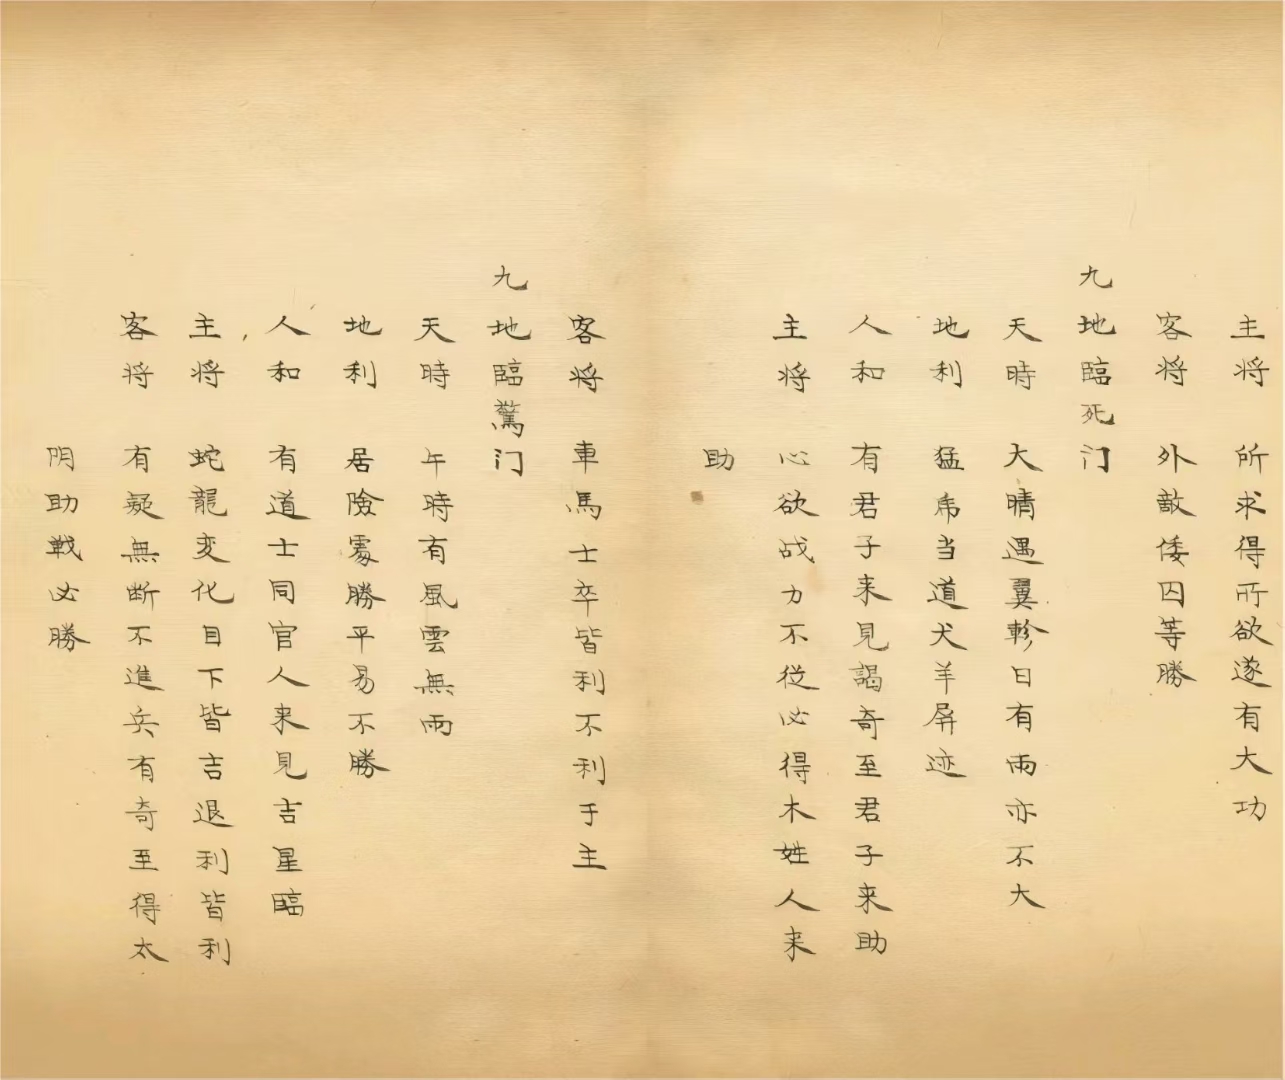 主将 所求得所欲遂有大功
客将 外敵倭囚等勝
九地臨死门
天時 大晴遇翼軫日有雨亦不大
地利 猛虎当道犬羊屏迹
人和 有君子来見謁奇至君子来助
主将 心欲战力不从必得木姓人来
助
客将 車馬士卒皆利不利于主
九地臨驚门
天時 午時有風雲無雨
地利 居險處勝平易不勝
人和 有道士同官人来見吉星臨
主将 蛇龍变化目下皆吉退利皆利
客将 有疑無断不進兵有奇至得太
阴助戦必勝